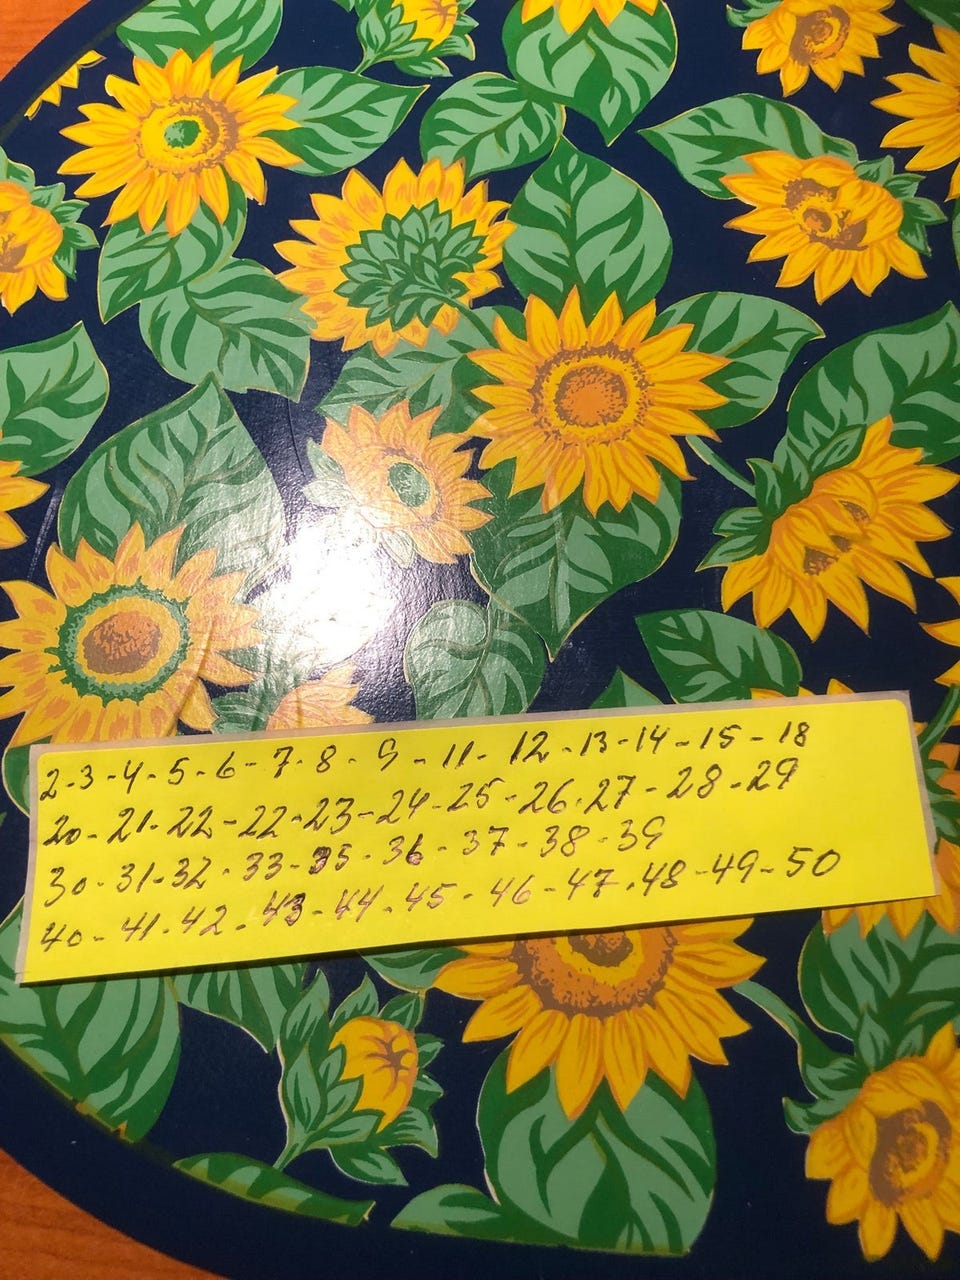 2-3-4-5-6-7-8-9-11-12-13-14-15-18
20-21-22-22-23-24-25-26-27-28-29
30-31-32-33-35-36-37-38-39
40-41-42-43-44-45-46-47-48-49-50